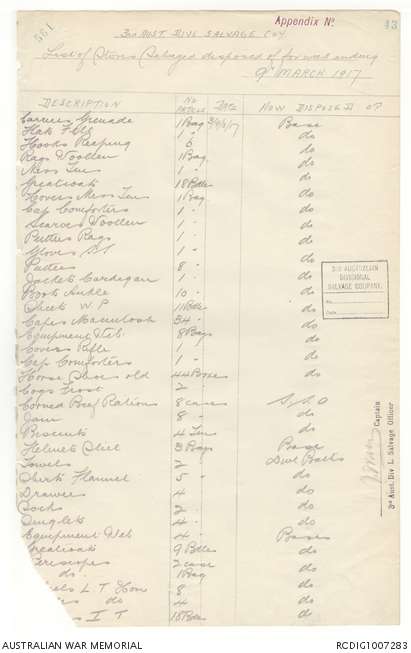 Appendix No
43
561
3RD AUST DIVE SALVAGE COY
List of Stores Salvaged disposed of for week ending
9th MARCH 1917
DESCRIPTION NO DATE HOW DISPOSED OF
Carriers Grenade 1 Bag 3/9/17 Base
Hats Felt 1 " do
Hooks Reaping 6 do
Rags Woollen 1 Bag do
Mess Tins 1 " do
Greatcoats 18 Bdles do
Covers Mess Tin 1 Bag do
Cap Comforters 1 " do
Scarves Woollen 1 " do
Putties Rags 1 " do
Gloves 1 " do
Putties 8 " do
Jackets Cardegan 1 " do
Boots Ankle 10 " do
Sheets W.P. 11 Bdle do
Capes Macintosh 34 " do
Equipment Web 8 Bags do
Covers Rifle 1 " do
Cap Comforters 1 " do
Horse Shoes old 44 Boxes do
Cogs Frost 2 " do
Corned Beef Rations 8 cases S.S.O
Jam 8 " do
Biscuits 4 Tins do
Helmets Steel 3 Bags Base
Towels 2 " Divl Baths
Shirts Flannel 5 " do
Drawers 4 do
Socks 2 " do
Singlets 4 " do
Equipment Web 4 " Base
Greatcoats 9 Bdles do
Periscopes 2 case do
do. 1 Bag do
L.T. 8 do
do 4 do
I T 18 Bdle do
3RD AUSTRALIAN
DIVISIONAL
SALVAGE COMPANY.
No.
Date
Captain
3rd Aust. Div L. Salvage Officer
AUSTRALIAN WAR MEMORIAL
RCDIG1007283